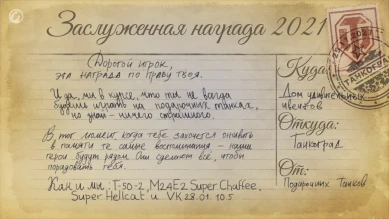 Заслуженная награда 2021
Дорогой игрок,
эта награда по праву твоя.
И да, мы в курсе, что ты не всегда
будешь играть на подарочных танках,
но знай – ничего страшного.
В тот момент когда тебе захочется оживить
в памяти те самые воспоминания – наши
герои будут рядом. Они сделают всё, чтобы
порадовать тебя.
Как и мы: Т-50-2, M24E2 Super Chaffee,
Super Hellcat и VK 28.01 10.5
Куда:
Дом удивительных
ивентов
Откуда:
Танкоград
От:
Подарочных Танков
Т
ТАНКОГРАД